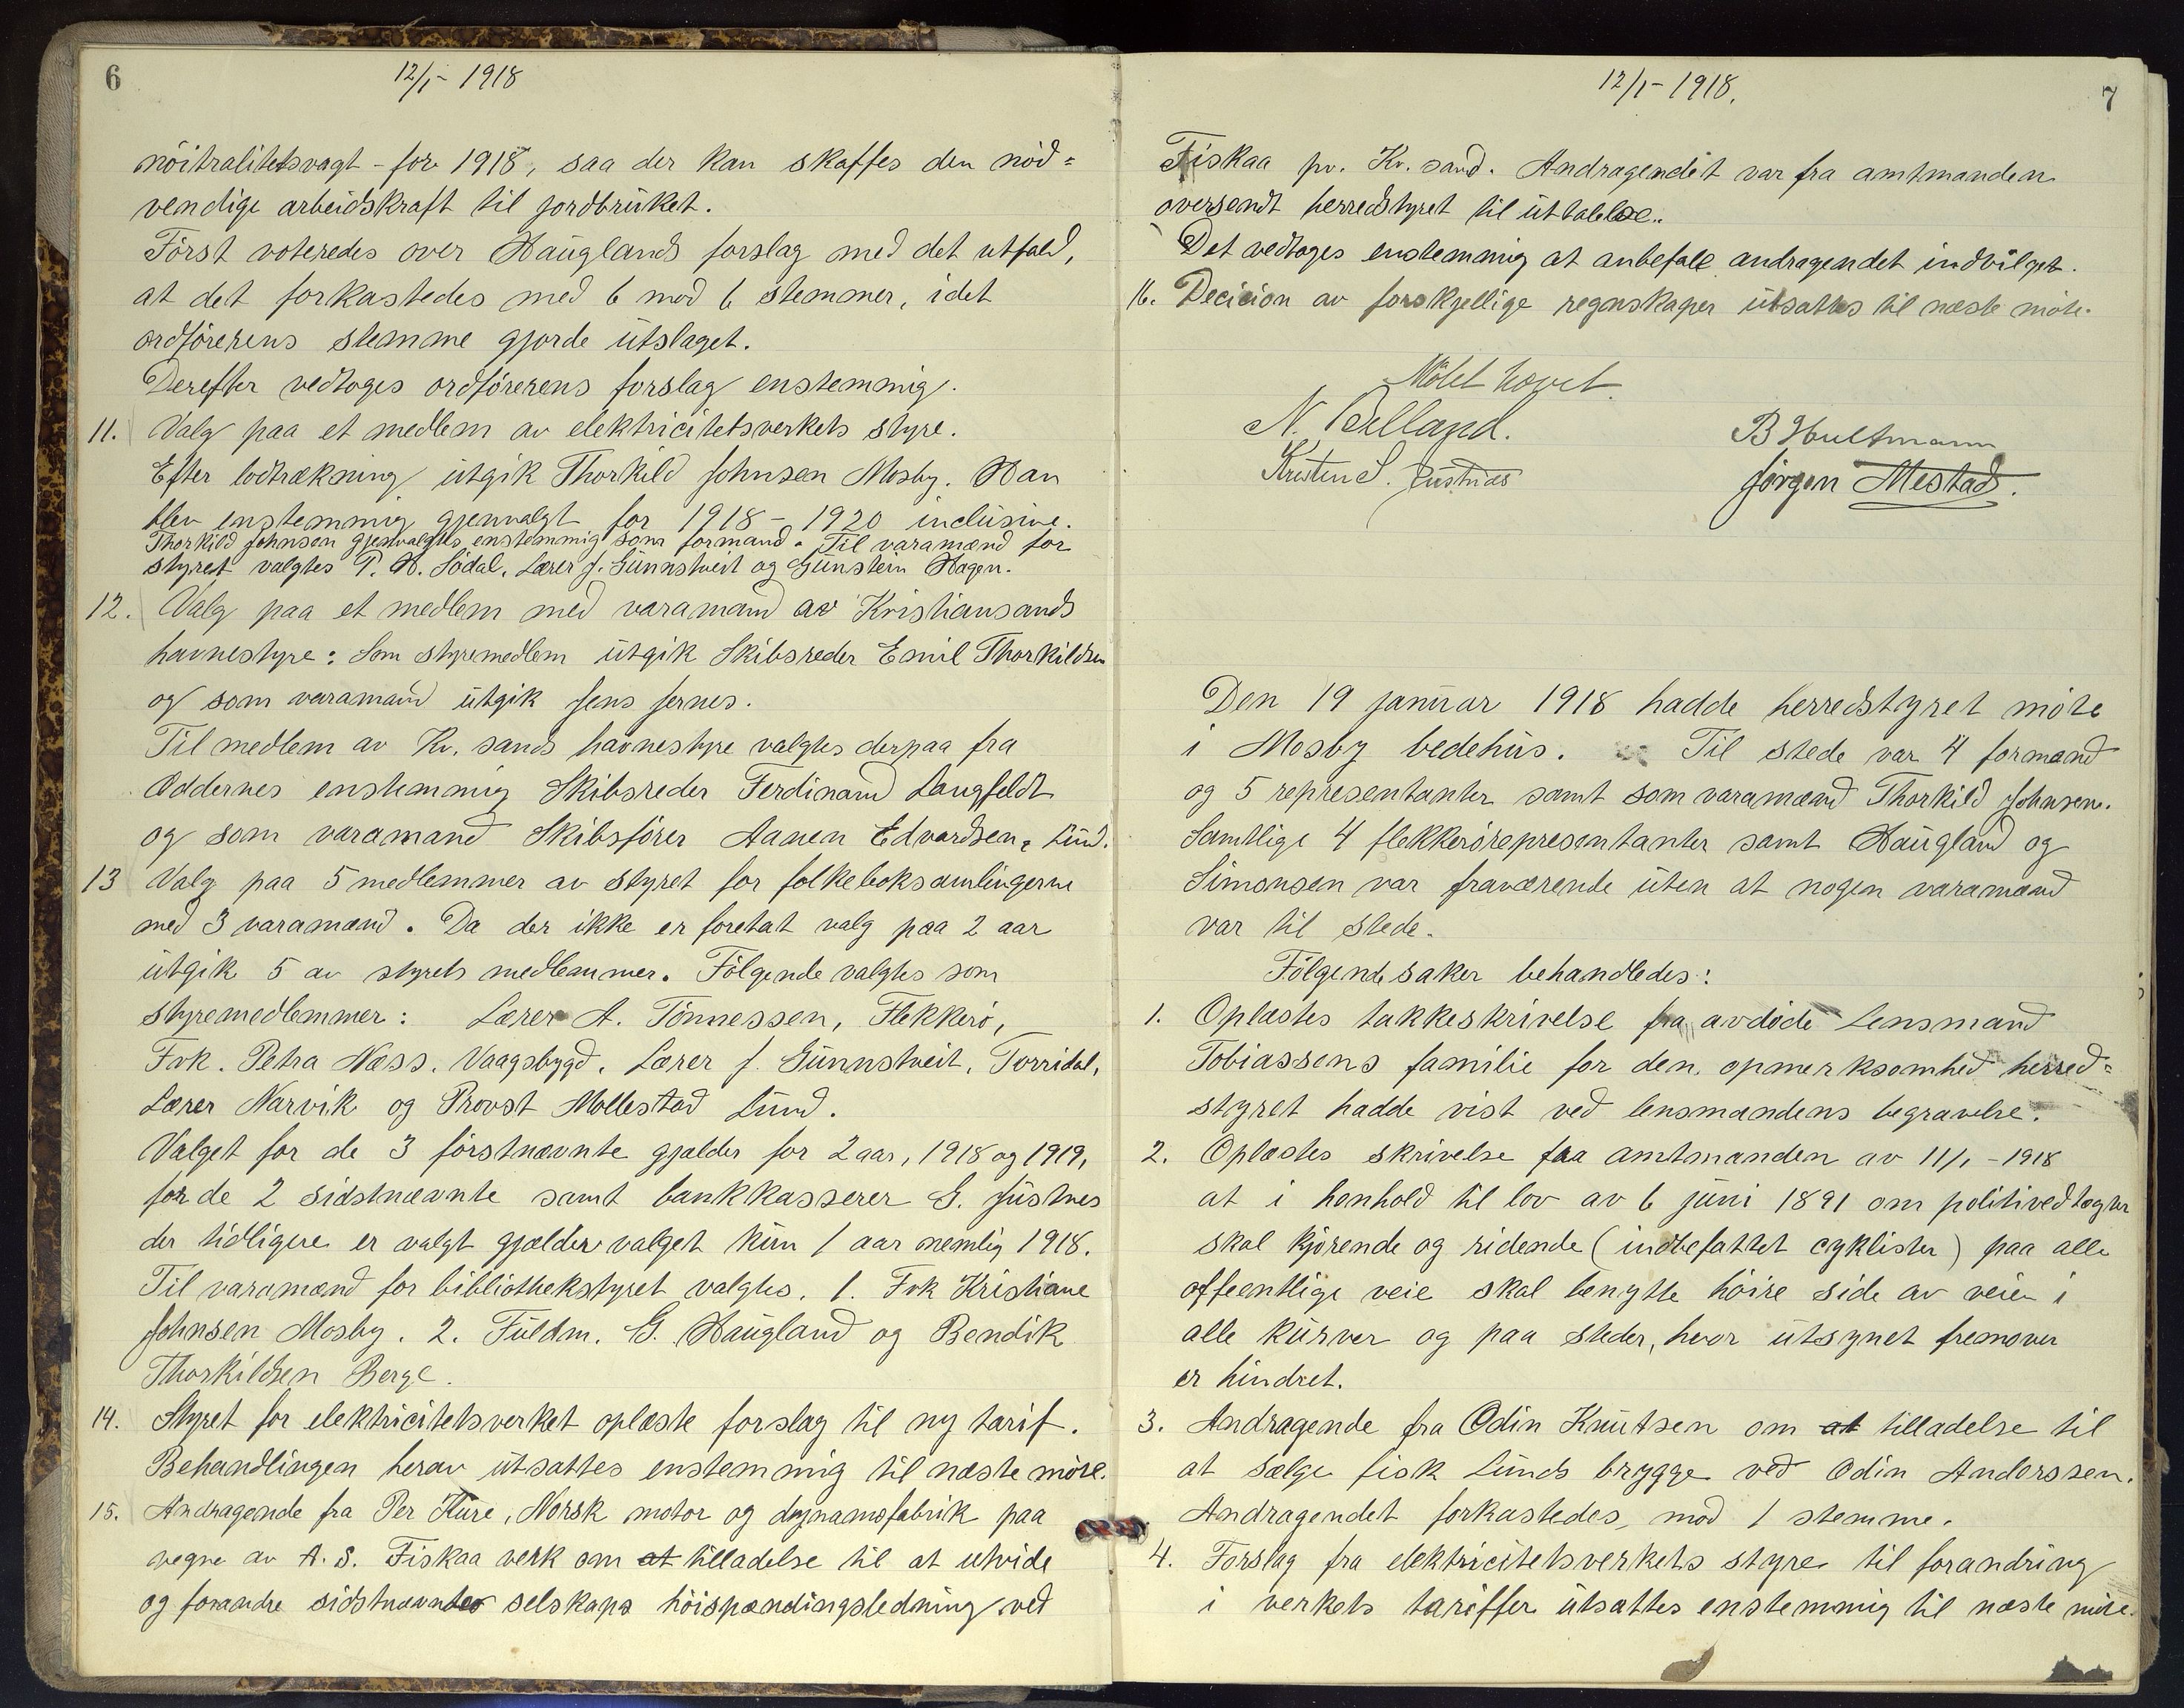 6
12/1- 1918
nöitralitetsvagt - for 1918, saa der kan skaffes den nöd-
vendige arbeidskraft til jordbruket.
Först voteredes over Hauglands forslag med det utfald,
at det forkastedes med 6 mod 6 stemmer, idet
ordförerens stemme gjorde utslaget.
Derefter vedtoges ordförerens forslag enstemmig.
11. Valg paa et medlem av elektricitetsverkets styre.
Efter lodtrækning utgik Thorkild Johnsen Mosby. Han
blev enstemmig gjenvalgt for 1918 - 1920 inclusive.
Thorkild Johnsen gjenvalgtes enstemmig som formand. Til varamænd for
styret valgtes P. H. Södal, Lærer J. Gunnstveit og Gunstein Hagen.
12. Valg paa et medlem med varamand av Kristiansands
havnestyre: Som styremedlem utgik Skibsreder Emil Thorkildsen
og som varamand utgik Jens Jernes.
Til medlem av Kr. sands havnestyre valgtes derpaa fra
Oddernes enstemmig Skibsreder Ferdinand Langfeldt
og som varamand Skibsförer Aanen Edvardsen, Lund.
13 Valg paa 5 medlemmer av styret for folkeboksamlingerne
med 3 varamænd. Da der ikke er foretat valg paa 2 aar
utgik 5 av styrets medlemmer. Fölgende valgtes som
styremedlemmer: Lærer A. Tönnessen, Flekkerö,
Frk. Petra Næss, Vaagsbygd, Lærer J. Gunnstveit, Torridal,
Lærer Narvik og Provst Mollestad Lund.
Valget for de 3 förstnævnte gjælder for 2 aar, 1918 og 1919,
for de 2 sidstnævnte samt bankkasserer G. Justnes
der tidligere er valgt gjælder valget kun 1 aar nemlig 1918.
Til varamænd for bibliothekstyret valgtes. 1. Frk Kristiane
Johnsen Mosby. 2. Fuldm. G. Haugland og Bendik
Thorkildsen Berge.
14. Styret for elektricitetsverket oplæste forslag til ny tarif.
Behandlingen herav utsattes enstemmig til næste möte.
15. Andragende fra Per Kure, Norsk motor og dynamofabrik paa
vegne av A. S. Fiskaa verk om at tilladelse til at utvide
og forandre sidstnævntes selskaps höispændingsledning ved
12/1- 1918.
7
Fiskaa pr. Kr. sand. Andragendet var fra amtmanden
oversendt herredstyret til uttalelse.
Det vedtoges enstemmig at anbefale andragendet indvilget.
16. Decision av forskjellige regnskaper utsattes til næste möte.
Mötet hævet.
N. Belland.
B Hultmann
Kristen S. Justnes
Jörgen Mestad.
Den 19 januar 1918 hadde herredstyret möte
i Mosby bedehus. Til stede var 4 formænd
og 5 representanter samt som varamænd Thorkild Johnsen.
Samtlige 4 flekkerörepresentanter samt Haugland og
Simonsen var fraværende uten at nogen varamænd
var til stede.
Fölgende saker behandledes:
1. Oplæstes takkeskrivelse fra avdöde Lensmand
Tobiassens familie for den opmerksomhed herred-
styret hadde vist ved lensmandens begravelse.
2. Oplæstes skrivelse fra amtmanden av 11/1 - 1918
at i henhold til lov av 6 juni 1891 om politivedtægter
skal kjörende og ridende (indbefattet cyklister) paa alle
offentlige veie skal benytte höire side av veien i
alle kurver og paa steder, hvor utsynet fremover
er hindret.
3. Andragende fra Odin Knutsen om at tilladelse til
at sælge fisk Lunds brygge ved Odin Anderssen.
Andragendet forkastedes, mod 1 stemme.
4. Forslag fra elektricitetsverkets styre til forandring
i verkets tariffer utsattes enstemmig til næste möte.